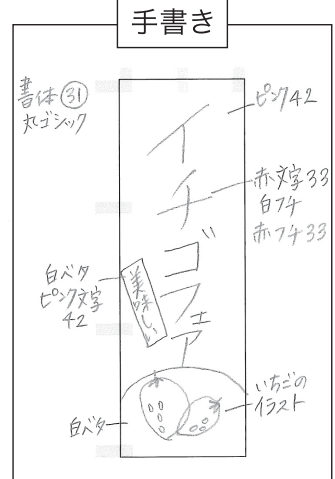 手書き
書体㉛
丸ゴシック
ピンク42
イチゴフェア
赤文字33
白フチ
赤フチ33
美味しい
白ベタ
ピンク文字
42
いちごの
イラスト
白ベタ